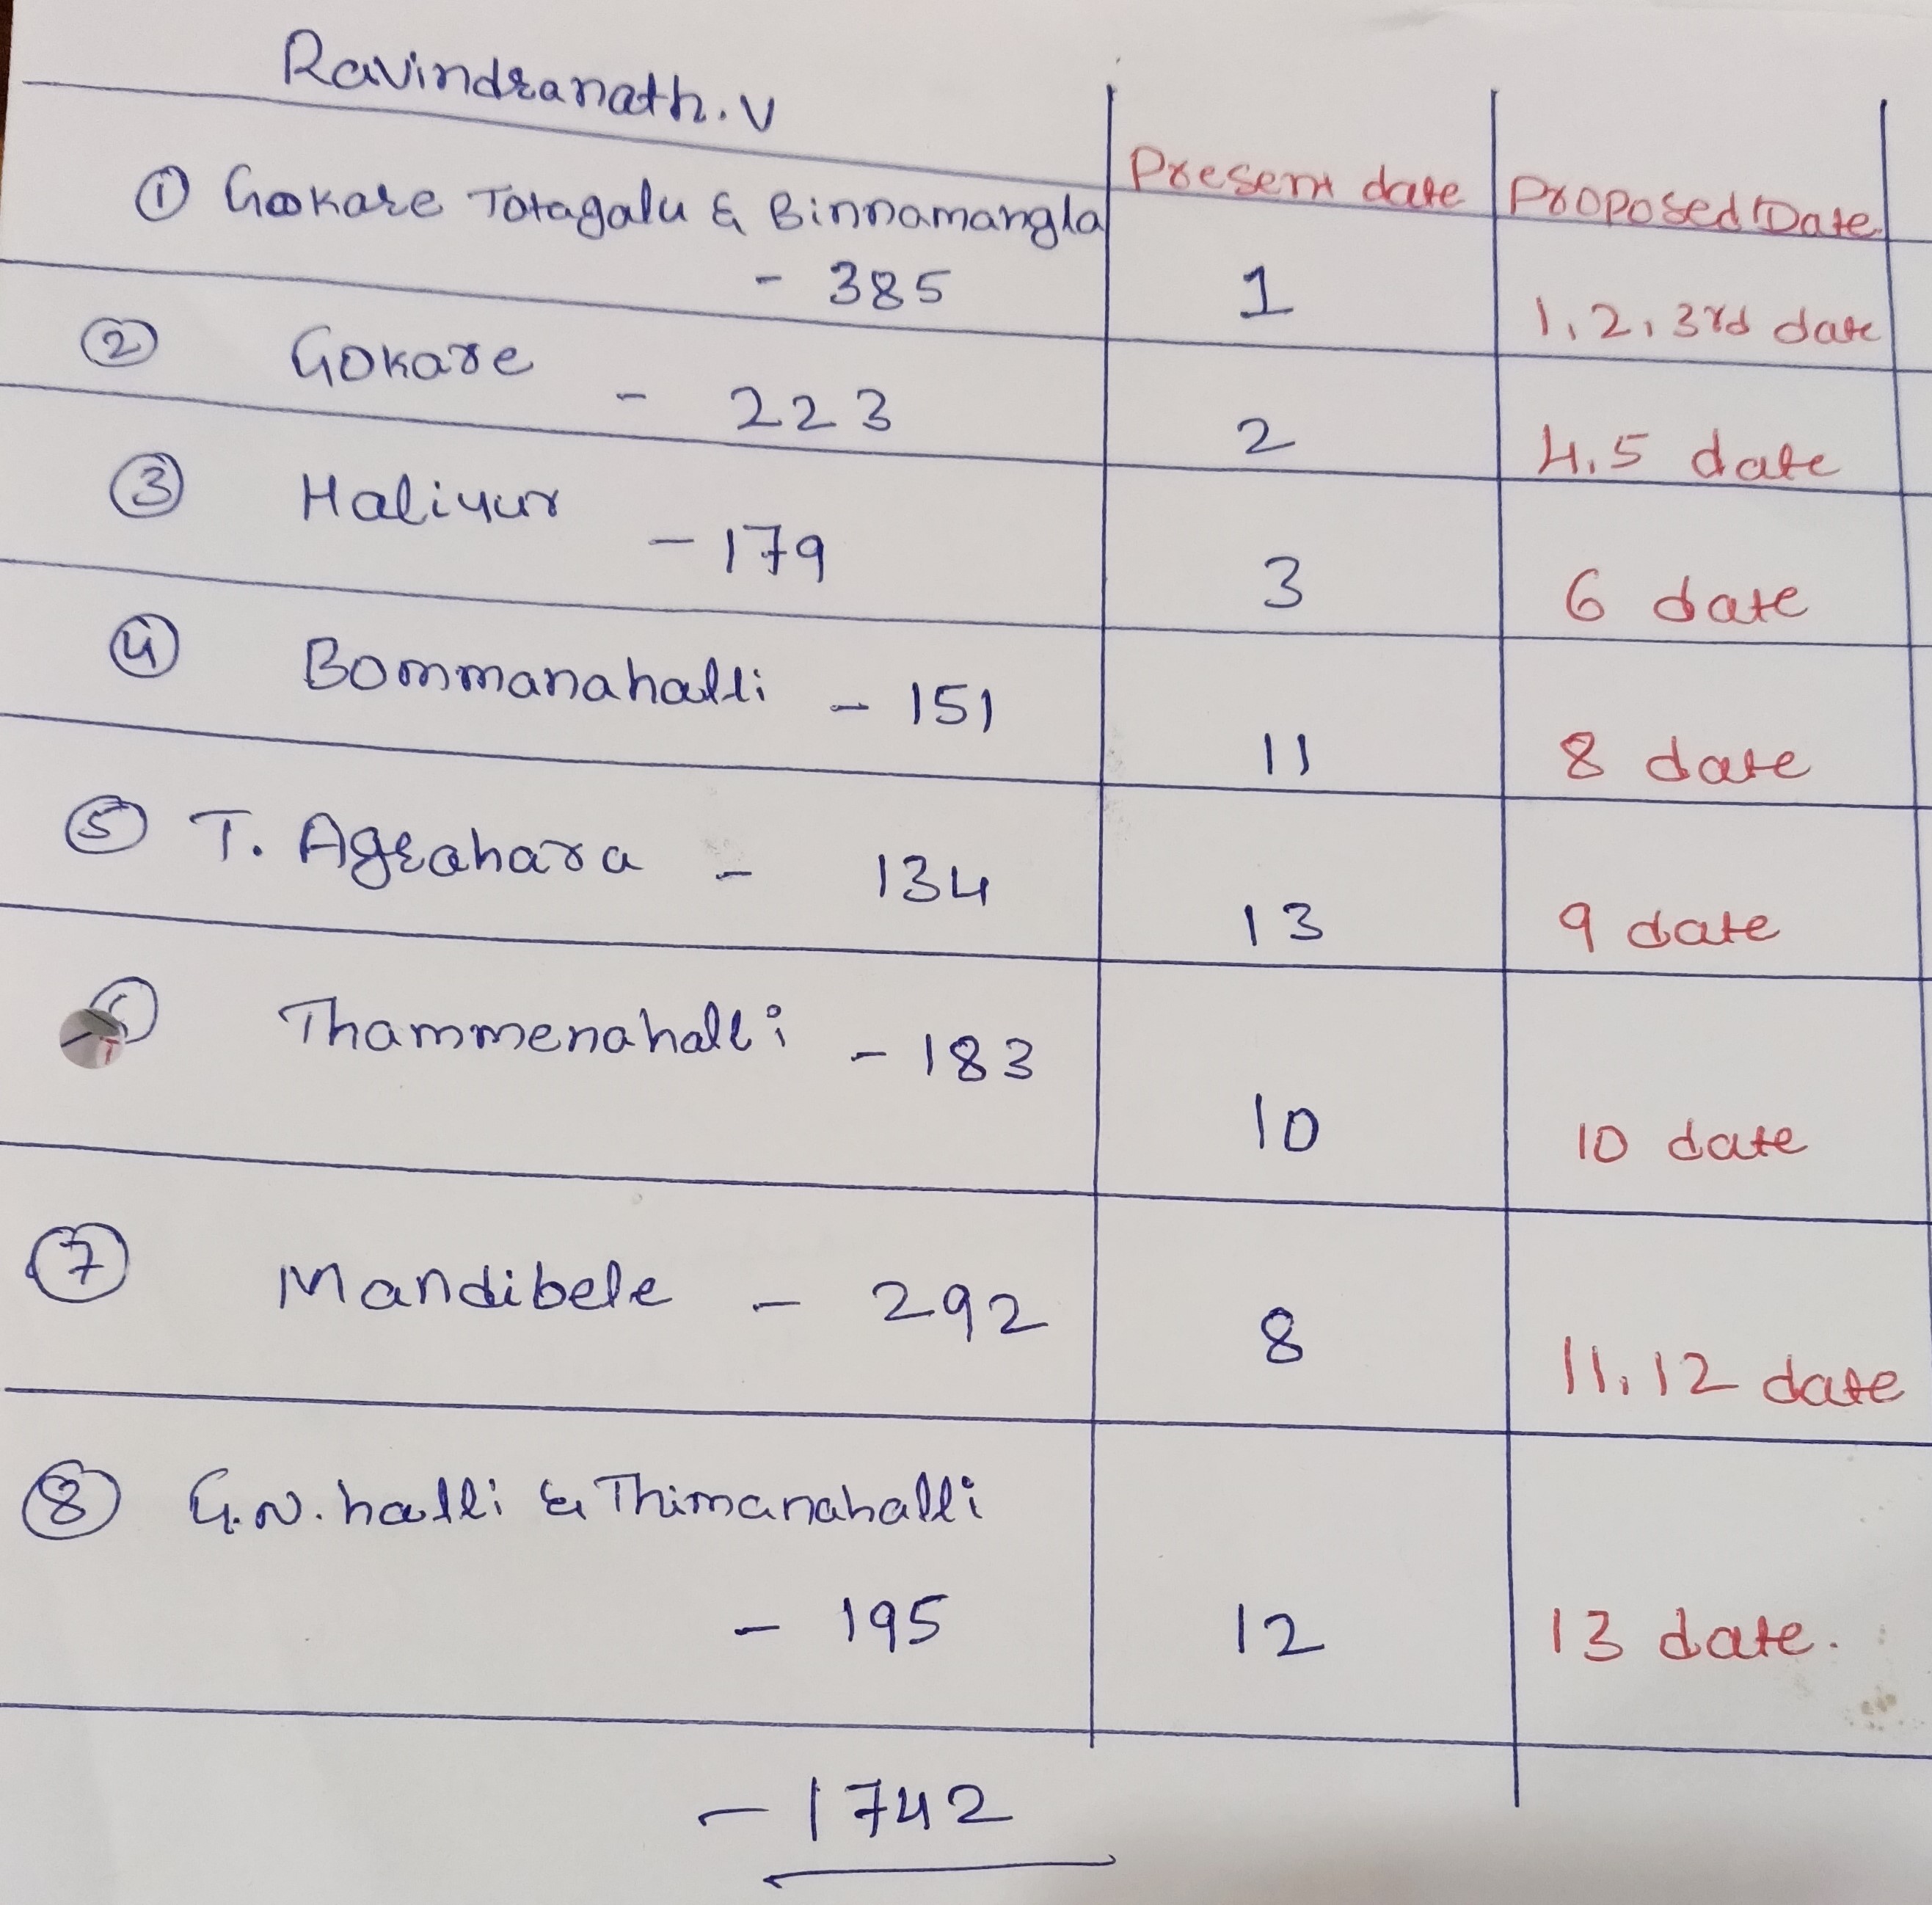 Ravindranath. V
Present date Proposed Date
① Gookare Totagalu & Binnamangla
- 385 1 1, 2, 3rd date
② Gokare - 223 2 4, 5 date
③ Haliyur - 179 3 6 date
④ Bommanahalli - 151 11 8 date
⑤ T. Agrahara - 134 13 9 date
Thammenahalli - 183 10 10 date
⑦ Mandibele - 292 8 11, 12 date
⑧ G.N. halli & Thimanahalli
- 195 12 13 date.
- 1742